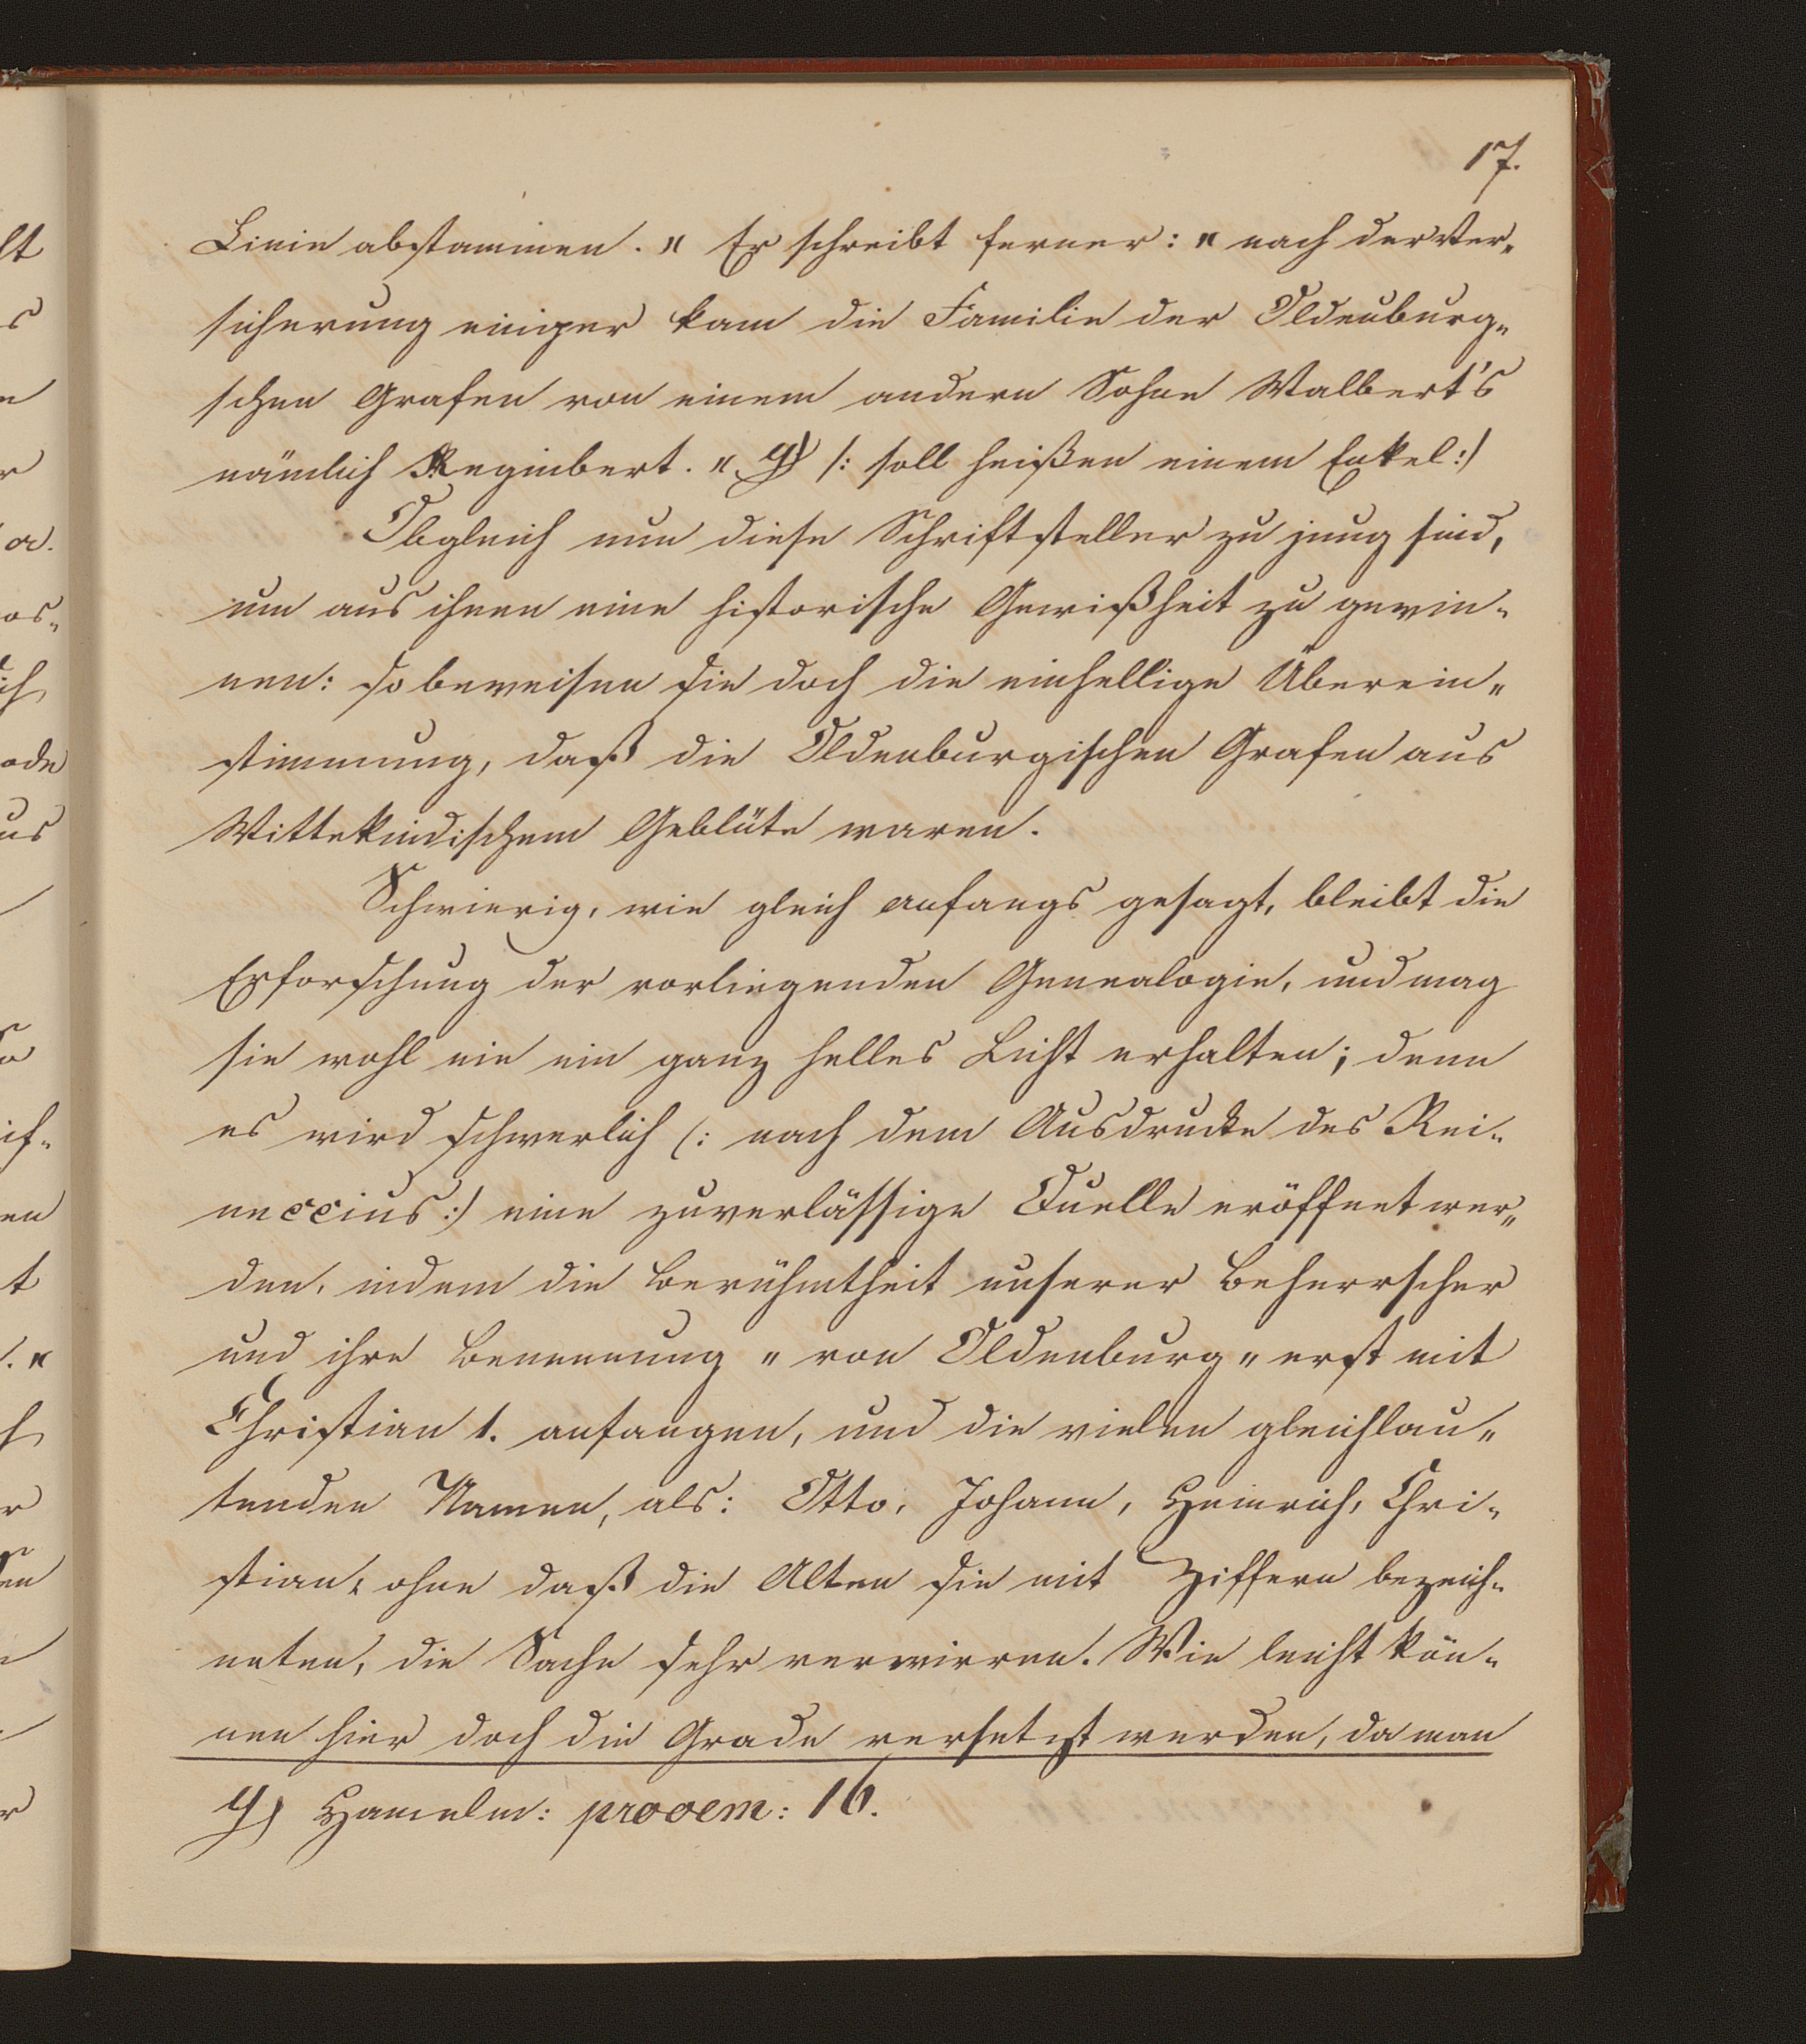 17.
Linie abstammen. " Er schreibt ferner: " nach der Ver„
sicherung einiger kam die Familie der Oldenburg„
schen Grafen von einem andern Sohne Walbert's
nämlich Reginbert. " y) /: soll heißen einem Enkel :/
Obgleich nun diese Schriftsteller zu jung sind,
um aus ihnen eine historische Gewißheit zu gewin„
nen: so beweisen sie doch die einhellige Überein„
stimmung, daß die Oldenburgischen Grafen aus
Wittekindischem Geblüte waren.
Schwierig, wie gleich anfangs gesagt, bleibt die
Erforschung der vorliegenden Genealogie, und mag
sie wohl nie ein ganz helles Licht erhalten; denn
es wird schwerlich (: nach dem Ausdrucke des Rei„
neccius :) eine zuverlässige Quelle eröffnet wer„
den, indem die Berühmtheit unserer Beherrscher
und ihre Benennung " von Oldenburg " erst mit
Christian 1. anfangen, und die vielen gleichlau„
tenden Namen, als: Otto, Johann, Heinrich, Chri„
stian, ohne daß die Alten sie mit Ziffern bezeich„
neten, die Sache sehr verwirren. Wie leicht kön„
nen hier doch die Grade versetzt werden, da man
y) Hamelm: prooem: 16.